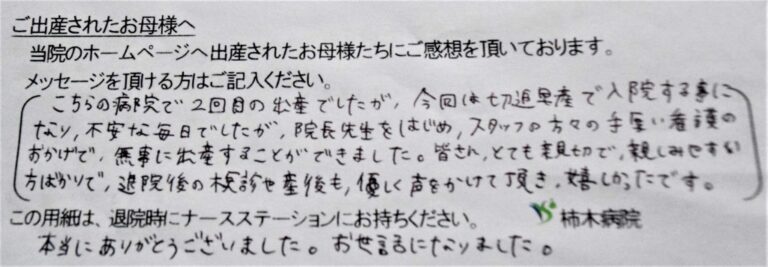 ご出産されたお母様へ
当院のホームページへ出産されたお母様たちにご感想を頂いております。
メッセージを頂ける方はご記入ください。
こちらの病院で2回目の出産でしたが、今回は切迫早産で入院する事に
なり、不安な毎日でしたが、院長先生をはじめ、スタッフの方々の手厚い看護の
おかげで、無事に出産することができました。皆さん、とても親切で、親しみやすい
方ばかりで、退院後の検診や産後も、優しく声をかけて頂き、嬉しかったです。
この用紙は、退院時にナースステーションにお持ちください。 柿木病院
本当にありがとうございました。お世話になりました。